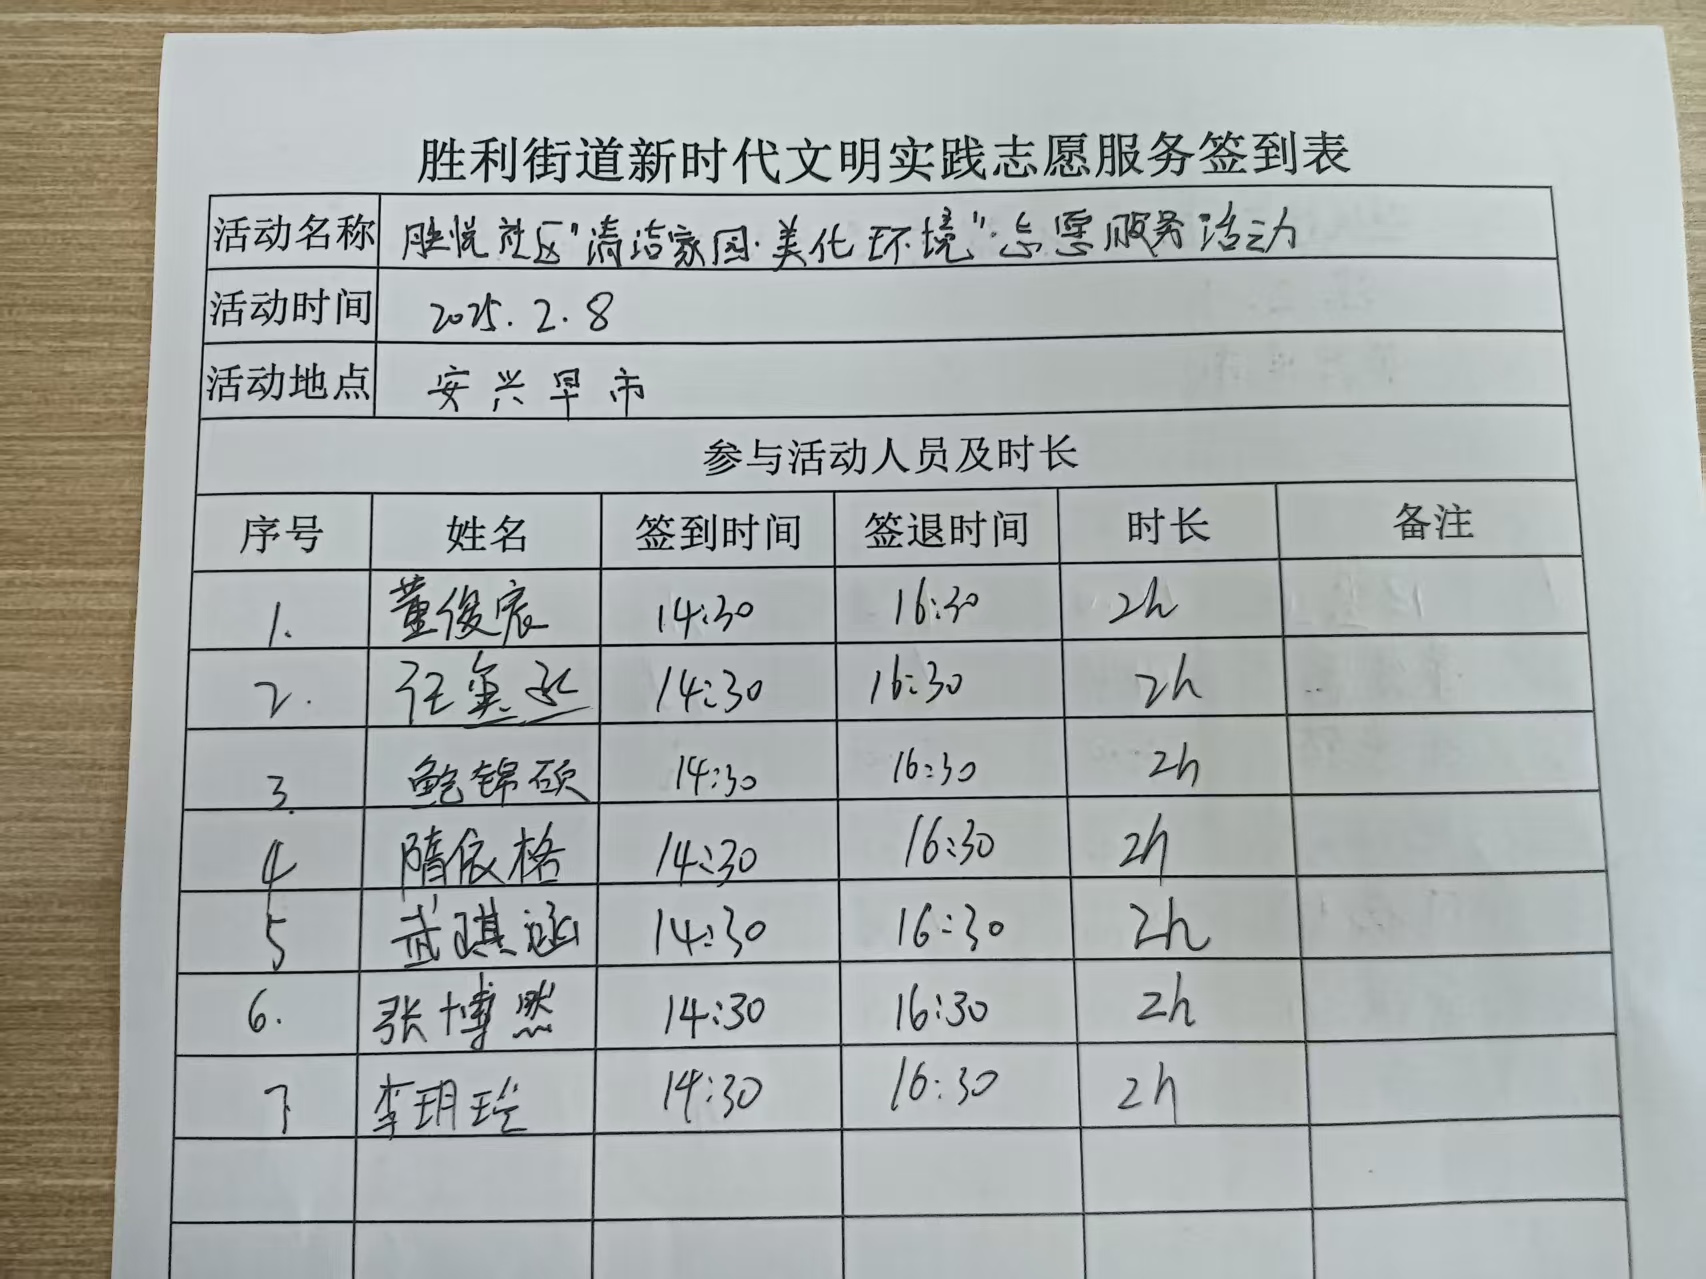 胜利街道新时代文明实践志愿服务签到表
活动名称 胜悦社区"清洁家园·美化环境"志愿服务活动
活动时间 2025.2.8
活动地点 安兴早市
参与活动人员及时长
序号 姓名 签到时间 签退时间 时长 备注
1. 董俊宸 14:30 16:30 2h
2. 任奕丞 14:30 16:30 2h
3. 鲍锦硕 14:30 16:30 2h
4 隋依格 14:30 16:30 2h
5 武琪涵 14:30 16:30 2h
6. 张博然 14:30 16:30 2h
7 李玥玲 14:30 16:30 2h